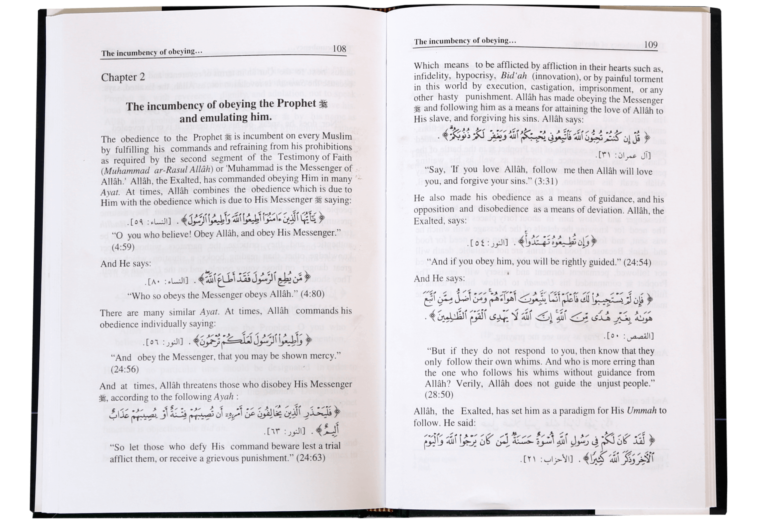 The incumbency of obeying... 108
Chapter 2
The incumbency of obeying the Prophet ﷺ
and emulating him.
The obedience to the Prophet ﷺ is incumbent on every Muslim
by fulfilling his commands and refraining from his prohibitions
as required by the second segment of the Testimony of Faith
(Muhammad ar-Rasul Allâh) or 'Muhammad is the Messenger of
Allâh.' Allâh, the Exalted, has commanded obeying Him in many
Ayat. At times, Allâh combines the obedience which is due to
Him with the obedience which is due to His Messenger ﷺ saying:
﴿ يَٰٓأَيُّهَا ٱلَّذِينَ ءَامَنُوٓا۟ أَطِيعُوا۟ ٱللَّهَ وَأَطِيعُوا۟ ٱلرَّسُولَ ﴾ . [النساء: ٥٩].
"O you who believe! Obey Allâh, and obey His Messenger."
(4:59)
And He says:
﴿ مَّن يُطِعِ ٱلرَّسُولَ فَقَدْ أَطَاعَ ٱللَّهَ ﴾ . [النساء: ٨٠].
"Who so obeys the Messenger obeys Allâh." (4:80)
There are many similar Ayat. At times, Allâh commands his
obedience individually saying:
﴿ وَأَطِيعُوا۟ ٱلرَّسُولَ لَعَلَّكُمْ تُرْحَمُونَ ﴾ . [النور: ٥٦].
"And obey the Messenger, that you may be shown mercy."
(24:56)
And at times, Allâh threatens those who disobey His Messenger
ﷺ, according to the following Ayah :
﴿ فَلْيَحْذَرِ ٱلَّذِينَ يُخَالِفُونَ عَنْ أَمْرِهِۦٓ أَن تُصِيبَهُمْ فِتْنَةٌ أَوْ يُصِيبَهُمْ عَذَابٌ
أَلِيمٌ ﴾ . [النور: ٦٣].
"So let those who defy His command beware lest a trial
afflict them, or receive a grievous punishment." (24:63)
The incumbency of obeying... 109
Which means to be afflicted by affliction in their hearts such as,
infidelity, hypocrisy, Bid'ah (innovation), or by painful torment
in this world by execution, castigation, imprisonment, or any
other hasty punishment. Allâh has made obeying the Messenger
ﷺ and following him as a means for attaining the love of Allâh to
His slave, and forgiving his sins. Allâh says:
﴿ قُلْ إِن كُنتُمْ تُحِبُّونَ ٱللَّهَ فَٱتَّبِعُونِى يُحْبِبْكُمُ ٱللَّهُ وَيَغْفِرْ لَكُمْ ذُنُوبَكُمْ ﴾ .
[آل عمران: ٣١].
"Say, 'If you love Allâh, follow me then Allâh will love
you, and forgive your sins." (3:31)
He also made his obedience as a means of guidance, and his
opposition and disobedience as a means of deviation. Allâh, the
Exalted, says:
﴿ وَإِن تُطِيعُوهُ تَهْتَدُوا۟ ﴾ . [النور: ٥٤].
"And if you obey him, you will be rightly guided." (24:54)
And He says:
﴿ فَإِن لَّمْ يَسْتَجِيبُوا۟ لَكَ فَٱعْلَمْ أَنَّمَا يَتَّبِعُونَ أَهْوَآءَهُمْ وَمَنْ أَضَلُّ مِمَّنِ ٱتَّبَعَ
هَوَىٰهُ بِغَيْرِ هُدًى مِّنَ ٱللَّهِ إِنَّ ٱللَّهَ لَا يَهْدِى ٱلْقَوْمَ ٱلظَّٰلِمِينَ ﴾ .
[القصص: ٥٠].
"But if they do not respond to you, then know that they
only follow their own whims. And who is more erring than
the one who follows his whims without guidance from
Allâh? Verily, Allâh does not guide the unjust people."
(28:50)
Allâh, the Exalted, has set him as a paradigm for His Ummah to
follow. He said:
﴿ لَّقَدْ كَانَ لَكُمْ فِى رَسُولِ ٱللَّهِ أُسْوَةٌ حَسَنَةٌ لِّمَن كَانَ يَرْجُوا۟ ٱللَّهَ وَٱلْيَوْمَ
ٱلْءَاخِرَ وَذَكَرَ ٱللَّهَ كَثِيرًا ﴾ . [الأحزاب: ٢١].